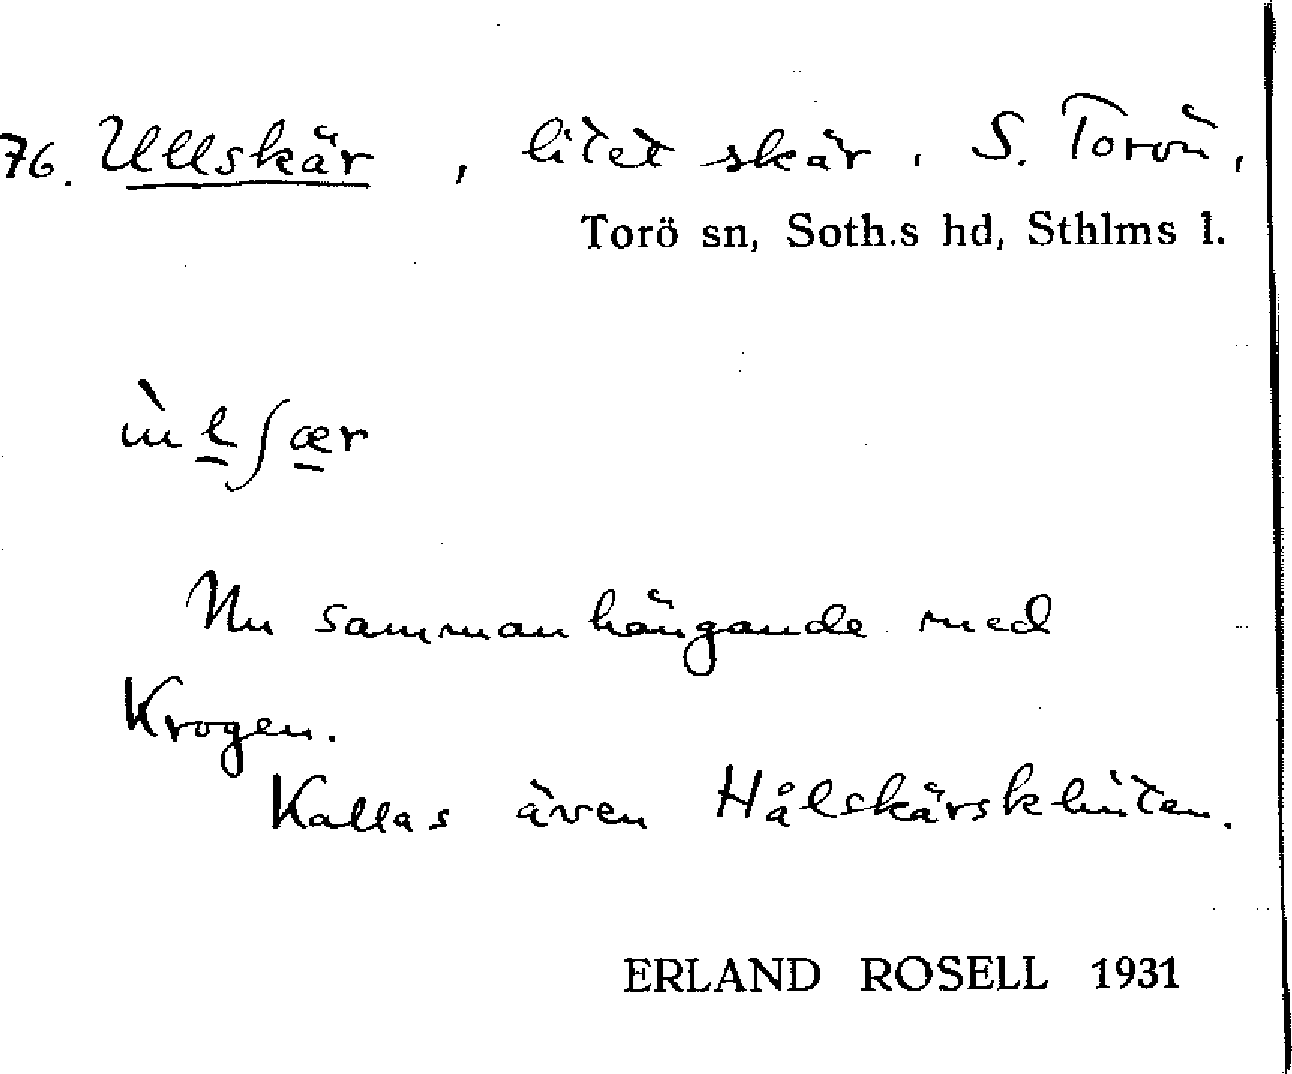 76. Ullskär, litet skär, S. Torön,
Torö sn, Soth.s hd, Sthlms l.
ùlʃær
Nu sammanhängande med
Krogen.
Kallas även Hålskärsklüten.
ERLAND ROSELL 1931